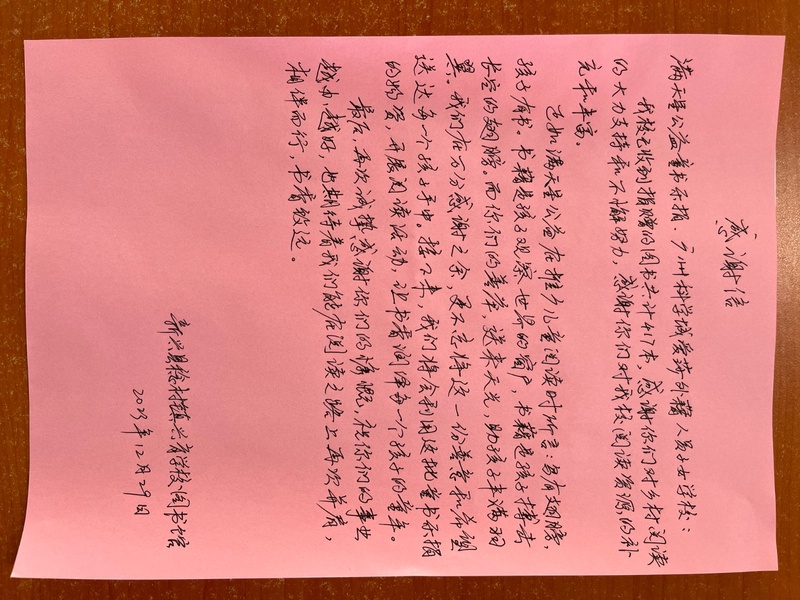 感谢信
满天星公益童书乐捐、广州科学城爱莎外籍人员子女学校：
我校已收到捐赠的图书共计417本，感谢你们对乡村阅读
的大力支持和不懈努力，感谢你们对我校阅读资源的补
充和丰富。
正如满天星公益在推乡儿童阅读时所言：鸟有翅膀，
孩子有书。书籍是孩子观察世界的窗户，书籍是孩子搏击
长空的翅膀。而你们的善举，送来天光，助孩子丰满羽
翼。我们在万分感谢之余，更不忘将这一份善意和希望
送达每一个孩子手中。接下来，我们将会利用这批童书乐捐
的物资，开展阅读活动，让书香润泽每一个孩子的童年。
最后，再次诚挚感谢你们的慷慨，祝你们的事业
越办越好，也期待着我们能在阅读之路上再次并肩，
相伴而行，书香致远。
新兴县稔村镇共育学校图书馆
2023年12月29日